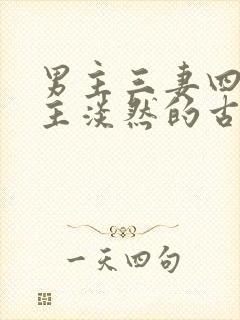 男主三妻四
主淡然的古
一天四句